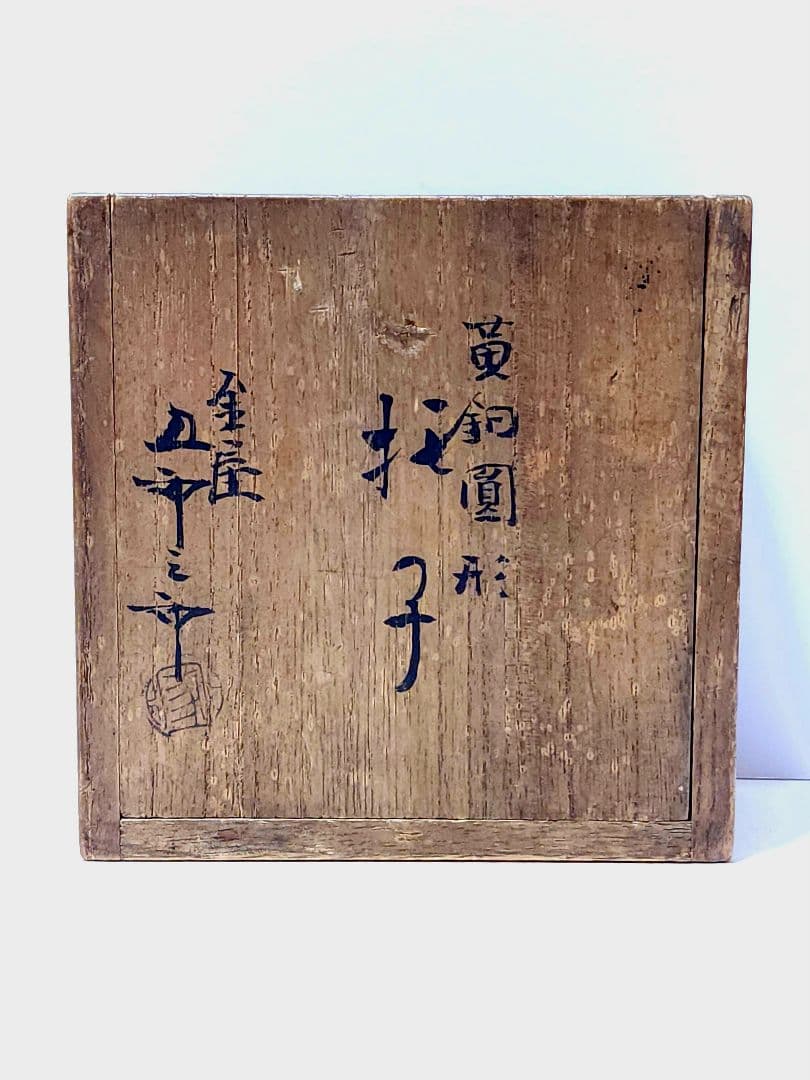 黃銅圓形
托子
金屋
五郎三郎